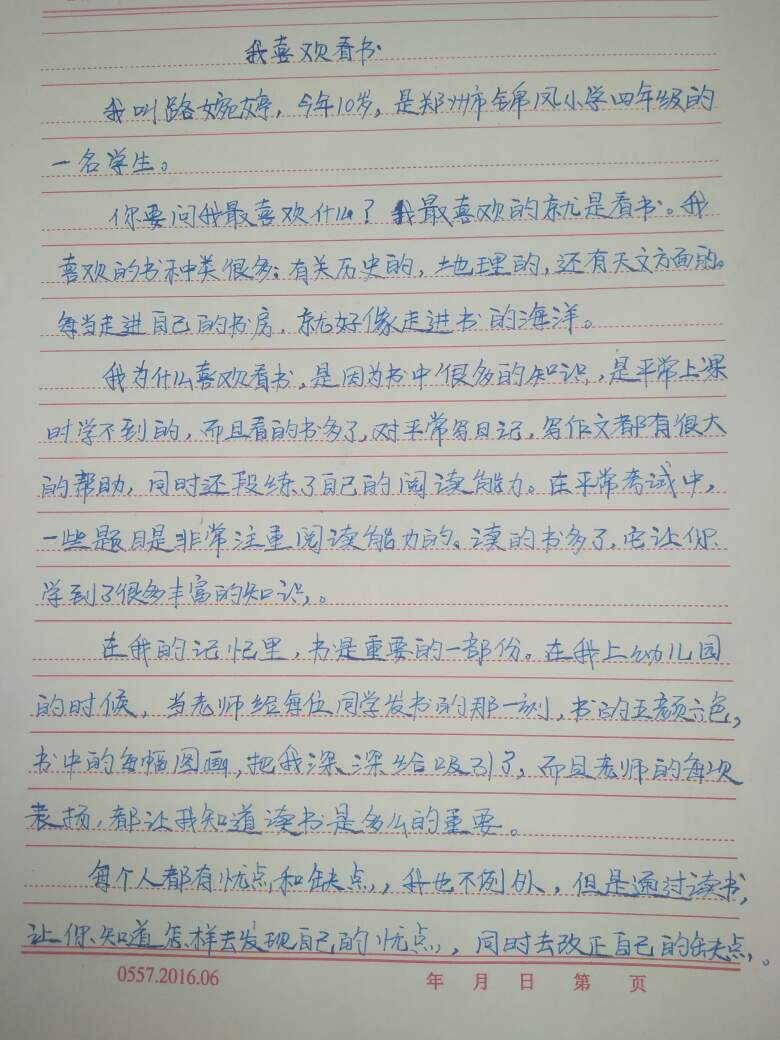 我喜欢看书
我叫路婉婷，今年10岁，是郑州市锦凤小学四年级的
一名学生。
你要问我最喜欢什么？我最喜欢的就是看书。我
喜欢的书种类很多：有关历史的，地理的，还有天文方面的。
每当走进自己的书房，就好像走进书的海洋。
我为什么喜欢看书，是因为书中很多的知识，是平常上课
时学不到的，而且看的书多了，对平常写日记，写作文都有很大
的帮助，同时还段练了自己的阅读能力。在平常考试中，
一些题目是非常注重阅读能力的。读的书多了，它让你
学到了很多丰富的知识。
在我的记忆里，书是重要的一部份。在我上幼儿园
的时候，当老师给每位同学发书的那一刻，书的五颜六色，
书中的每幅图画，把我深深给吸引了，而且老师的每次
表扬，都让我知道读书是多么的重要。
每个人都有忧点和缺点，我也不例外，但是通过读书，
让你知道怎样去发现自己的忧点，同时去改正自己的缺点。
0557.2016.06 年 月 日 第 页